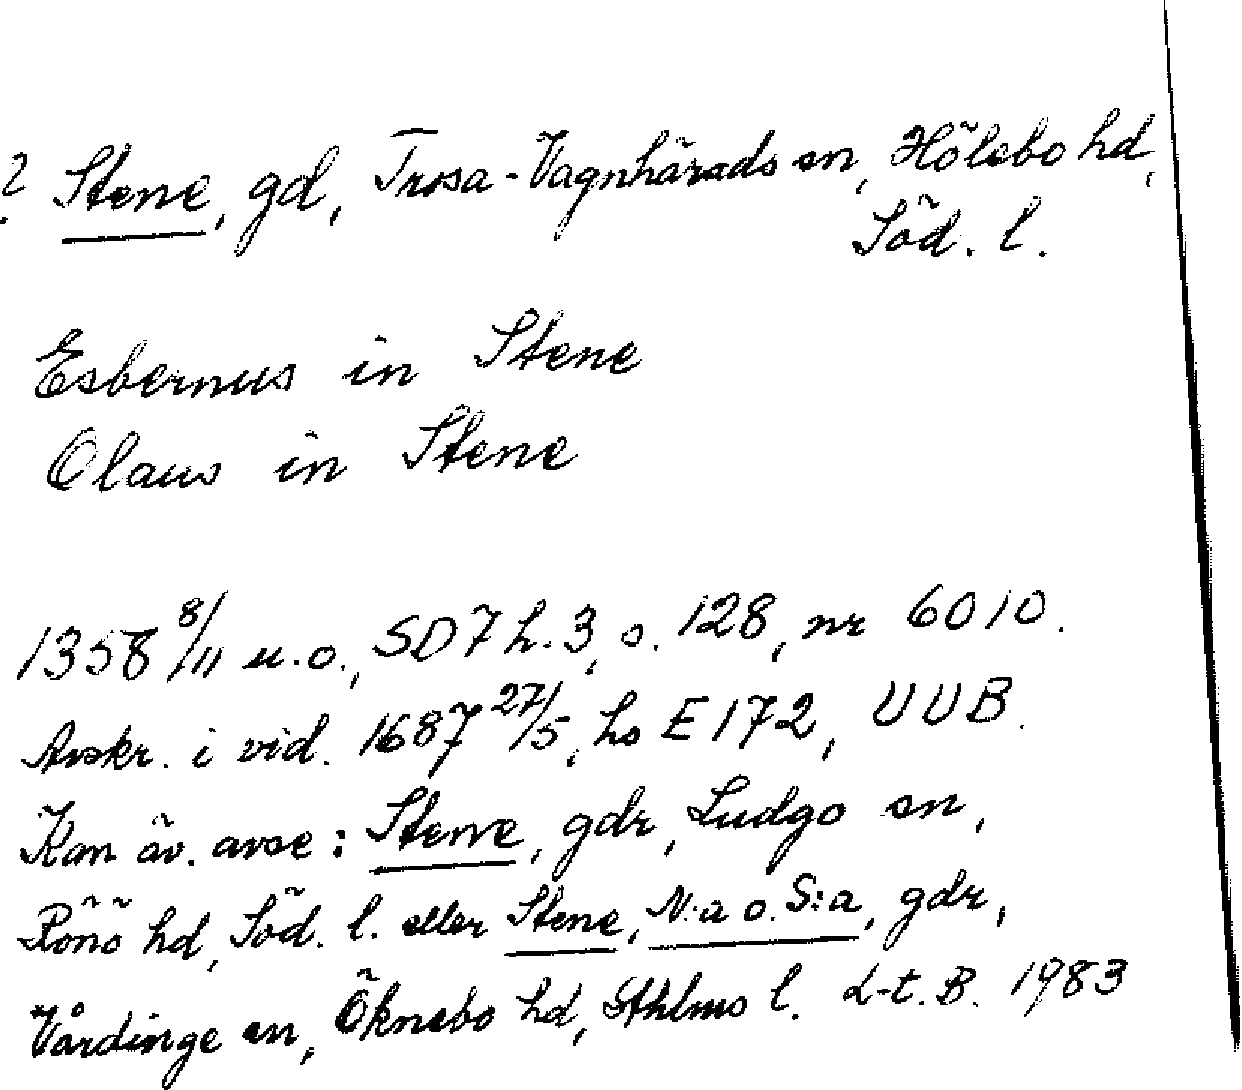 ? Stene, gd, Trosa-Vagnhärads sn, Hölebo hd,
Söd. l.
Esbernus in Stene
Olaus in Stene
1358 8/11 u.o., SD 7 h. 3, s. 128, nr 6010.
Avskr. i vid. 1687 27/5, hs E 172, UUB.
Kan äv. avse: Stene, gdr, Ludgo sn,
Rönö hd, Söd. l. eller Stene, N:a o. S:a, gdr,
Vårdinge sn, Öknebo hd, Sthlms l. L-t. B. 1983